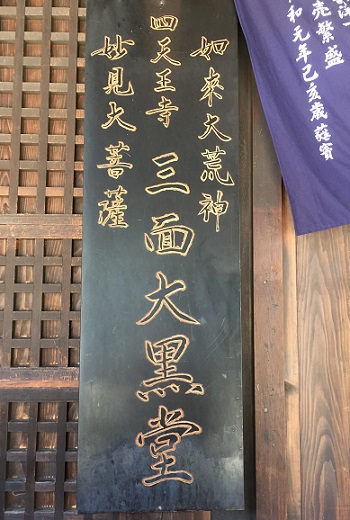 売繁盛
和元年己亥歳蕤賓
如来大荒神
四天王寺
三面大黒堂
妙見大菩薩